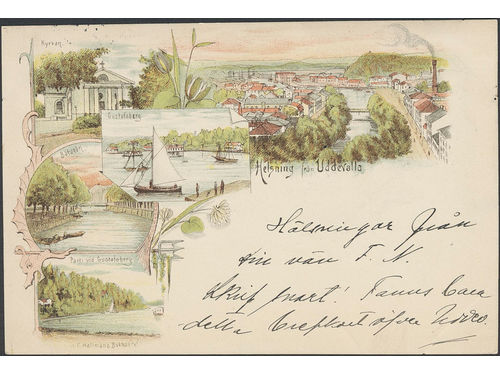 Kyrkan
Gustafsberg
Bäfvean
Helsning från Uddevalla
Parti vid Gustafsberg
Hälsningar från
din vän F. N.
Skrif snart! Fanns bara
detta brefkort öfver Uddev.
Hallmans Bokh.